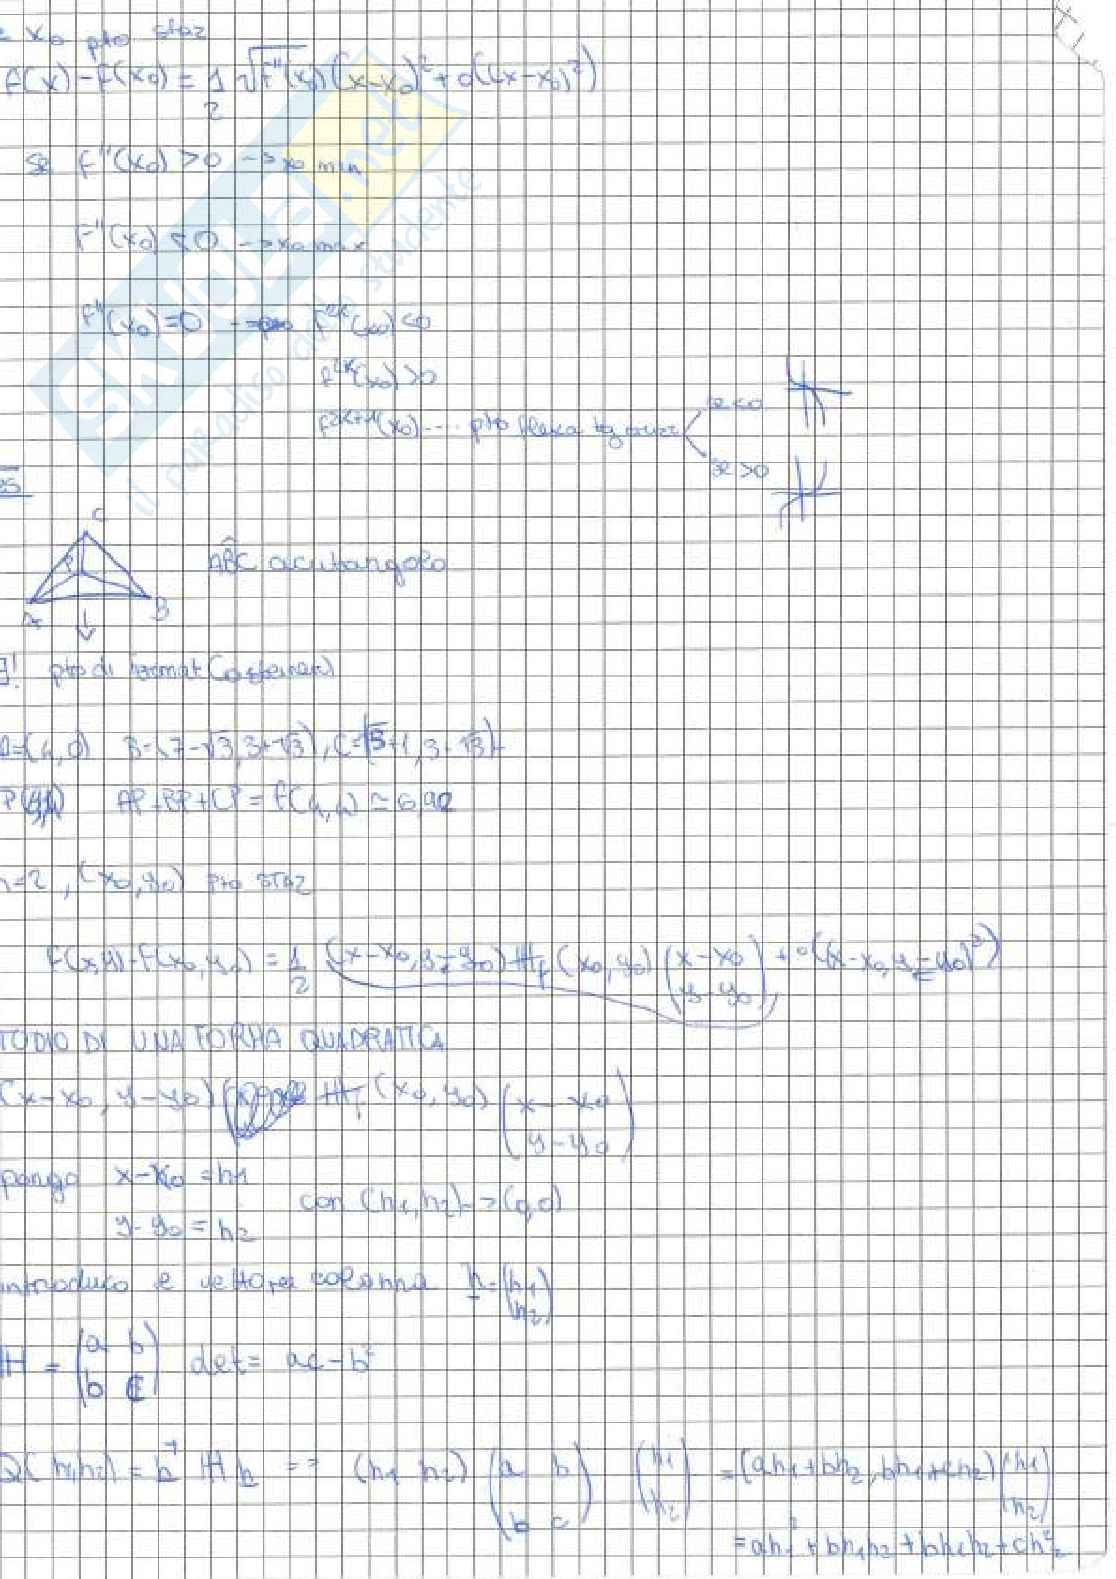 x₀ pto staz
f(x) - f(x₀) = 1/2 √f''(x₀) (x-x₀)² + o((x-x₀)²)
se f''(x₀) > 0 → x₀ min
f''(x₀) < 0 → x₀ max
f''(x₀) = 0 → f²ᴷ(x₀) < 0
f²ᴷ(x₀) > 0
f²ᴷ⁺¹(x₀) .... pto flesso tg orizz
se < 0
se > 0
es
C
P
ABC acutangolo
A
B
∃! pto di Fermat (o Steiner)
A=(4,0) B=(7-√3, 3+√3), C=(√3+1, 3+√3)
AP+BP+CP = f( , ) ≃ 6,92
n=2, (x₀,y₀) pto STAZ
f(x,y) - f(x₀,y₀) = 1/2 (x-x₀, y-y₀) Hf (x₀,y₀) (x-x₀ y-y₀) + o((x-x₀, y-y₀)²)
TUDIO DI UNA FORMA QUADRATICA
(x-x₀, y-y₀) Hf (x₀,y₀) (x-x₀ y-y₀)
pongo x-x₀ = h₁
con (h₁,h₂) → (0,0)
y-y₀ = h₂
introduco il vettore colonna h = (h₁ h₂)
H = (a b b c) det = ac-b²
Q(h₁,h₂) = hᵀ H h => (h₁ h₂) (a b b c) (h₁ h₂) = (ah₁+bh₂, bh₁+ch₂) (h₁ h₂)
= ah₁² + bh₁h₂ + bh₁h₂ + ch₂²
skuola.net
il paradiso dello studente